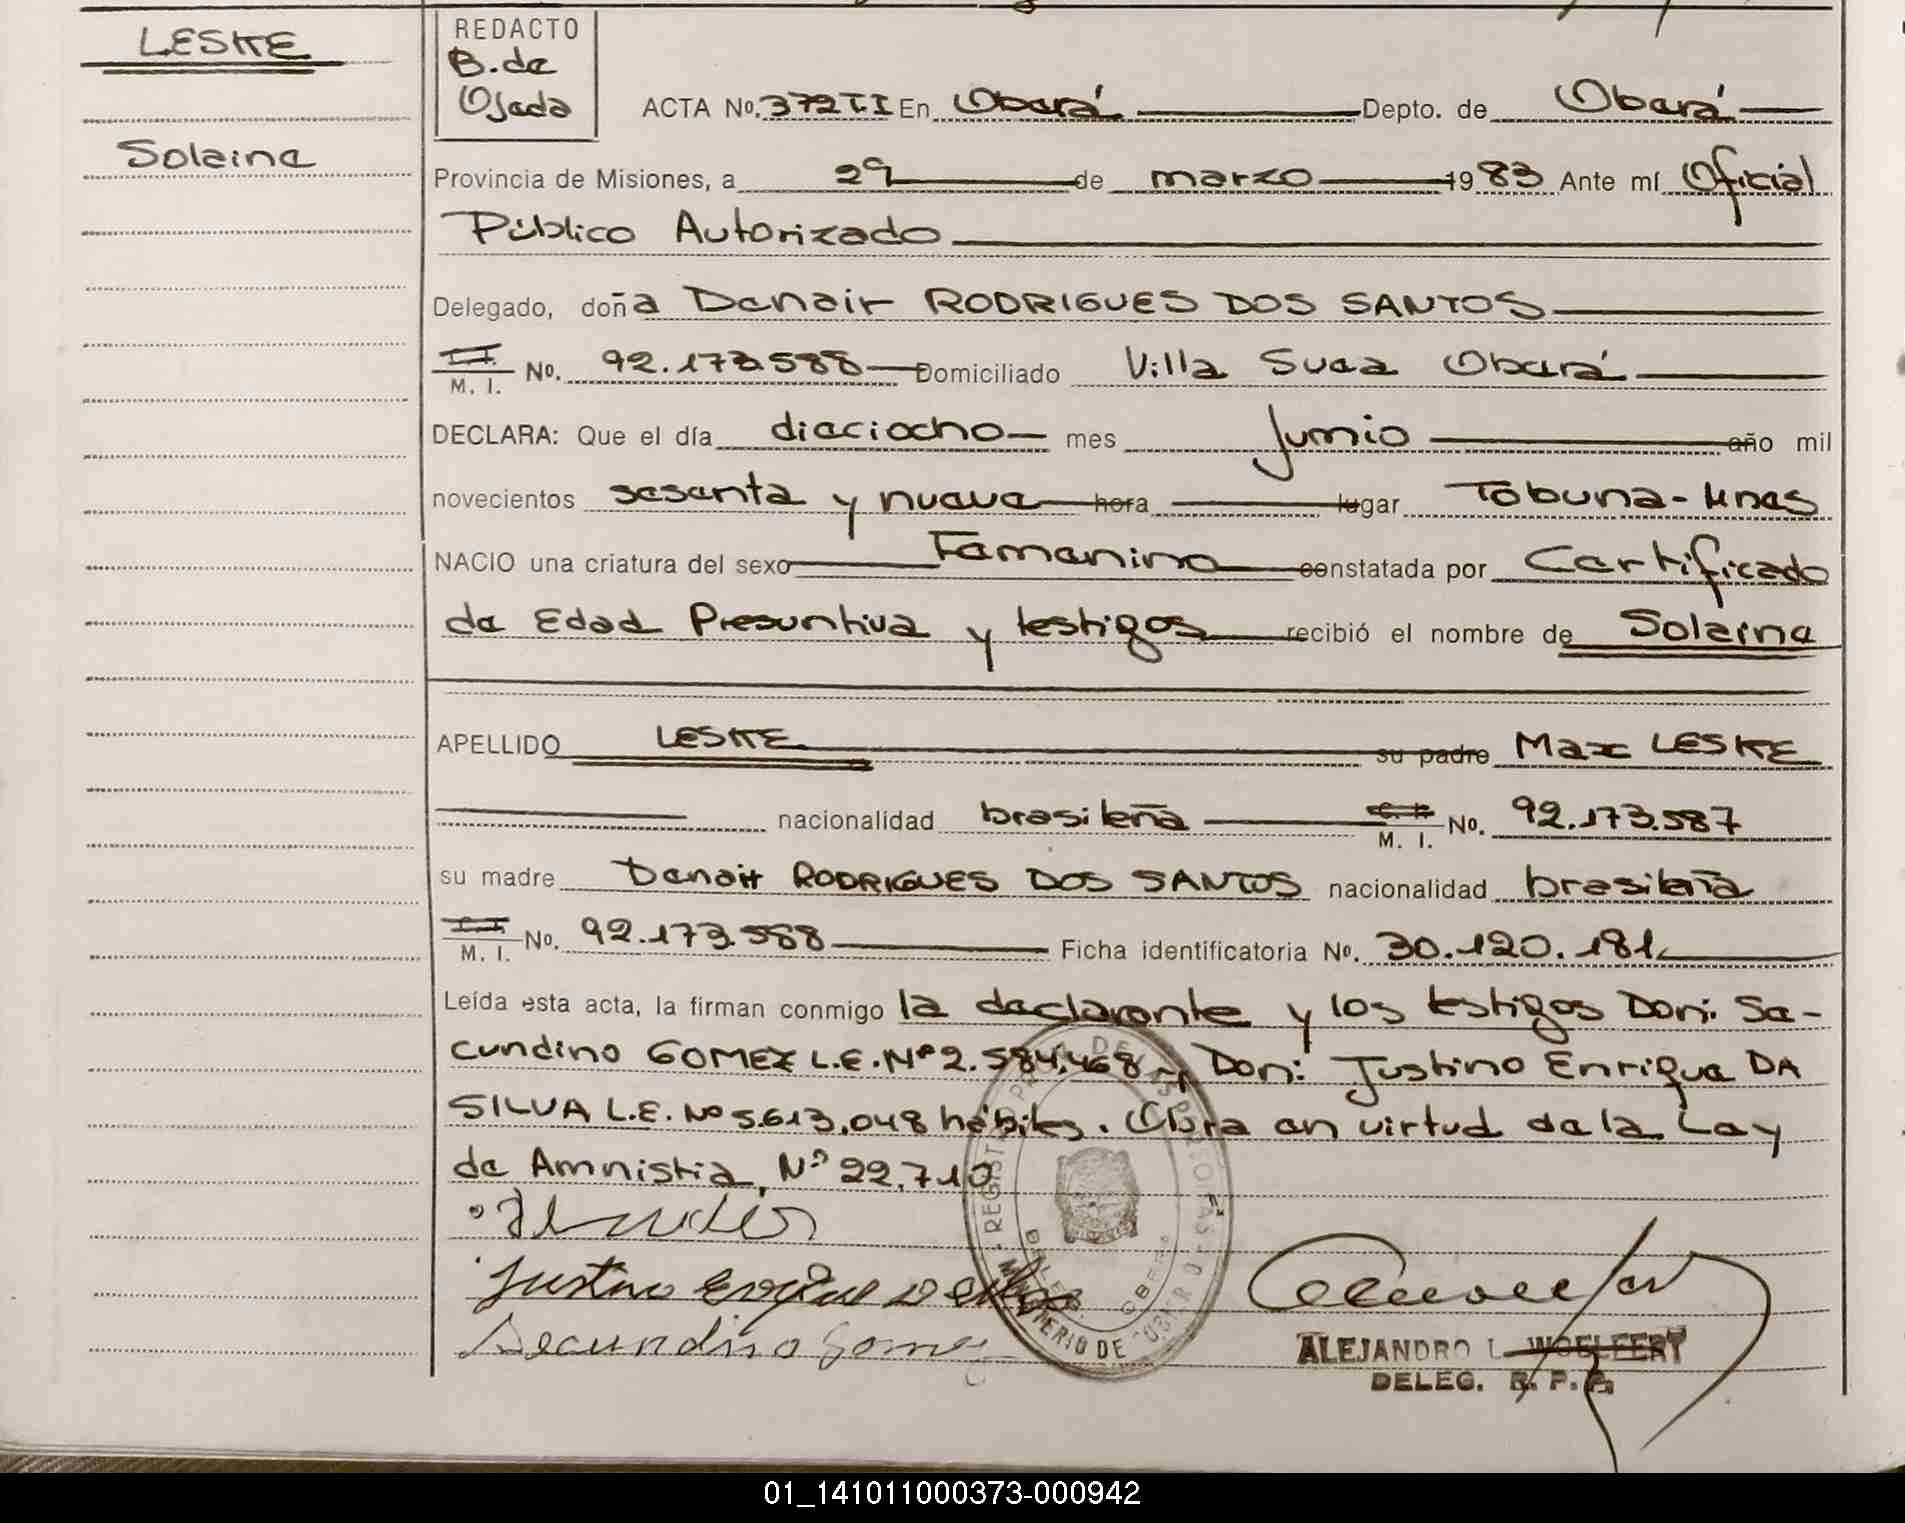 LESKE
Solaine
REDACTO
B. de
Ojeda
ACTA No. 372 T.I En Oberá Depto. de Oberá
Provincia de Misiones, a 29 de marzo 1983 Ante mí Oficial
Público Autorizado
Delegado, doña Denair RODRIGUES DOS SANTOS
M. I. No. 92.173.588 Domiciliado Villa Sueca Oberá
DECLARA: Que el día dieciocho mes Junio año mil
novecientos sesenta y nueve hora lugar Tobuna-Mnes
NACIO una criatura del sexo Femenino constatada por Certificado
de Edad Presuntiva y testigos recibió el nombre de Solaine
APELLIDO LESKE su padre Max LESKE
nacionalidad brasileña M. I. No. 92.173.587
su madre Denair RODRIGUES DOS SANTOS nacionalidad brasileña
M. I. No. 92.173.588 Ficha identificatoria No. 30.120.181
Leída esta acta, la firman conmigo la declarante y los testigos Don: Se-
cundino GOMEZ L.E. Nº 2.584.468 y Don: Justino Enrique DA
SILVA L.E. Nº 5.613.048 hábiles. Obra en virtud de la Ley
de Amnistia, Nº 22.710
Justino Enrique D
Secundino Gomez
REGISTRO PCIAL. DE LAS PERSONAS
MINISTERIO DE GOBIERNO
OBERA
ALEJANDRO L. WOELFERT
DELEG. R. P. P.
01_141011000373-000942